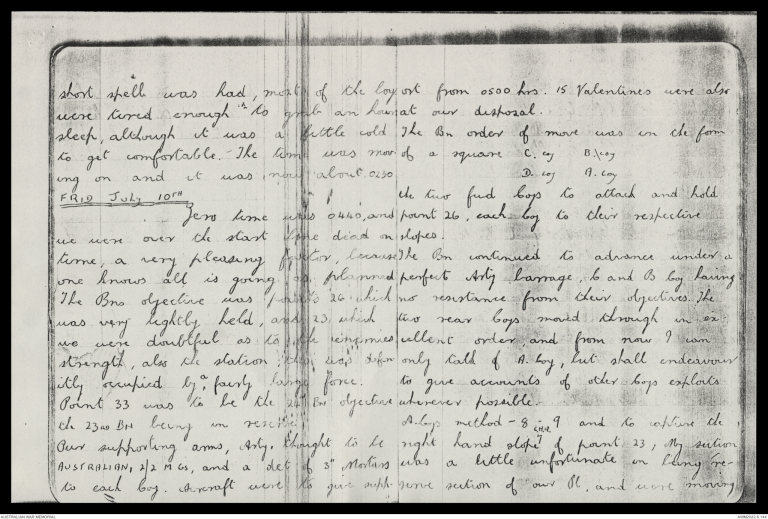 short spell was had, most of the boys
were tired enough to grab an hour
sleep, although it was a little cold
to get comfortable. The time was mov
ing on and it was now about 0230
FRID July 10TH
Zero time was 0440, and
we were over the start line dead on
time, a very pleasing factor, because
one knows all is going as planned
The Bns objective was point 26 which
was very lightly held, and 23, which
we were doubtful as to the enemies
strength, also the station, this was defin
itly occupied by a fairly large force.
Point 33 was to be the 24th BN objective
the 23rd BN being in reserve.
Our supporting arms, Arty. thought to be
AUSTRALIAN, 2/2 M Gs, and a det of 3" Mortars
to each Coy. Aircraft were to give supp-
ort from 0500 hrs. 15 Valentines were also
at our disposal.
The Bn order of move was in the form
of a square C. coy B. coy
D. coy A. coy
the two fwd Coys to attack and hold
point 26, each Coy to their respective
slopes.
The Bn continued to advance under a
perfect Arty barrage, C and B Coy having
no resistance from their objectives. The
two rear Coys moved through in ex-
cellent order, and from now I can
only talk of A. Coy, but shall endeavour
to give accounts of other Coys exploits
wherever possible.
A. Coys method - 8 - 9 and to capture the
right hand slope of point 23, My section
was a little unfortunate in being re-
serve section of our Pl, and were moving
AUSTRALIAN WAR MEMORIAL